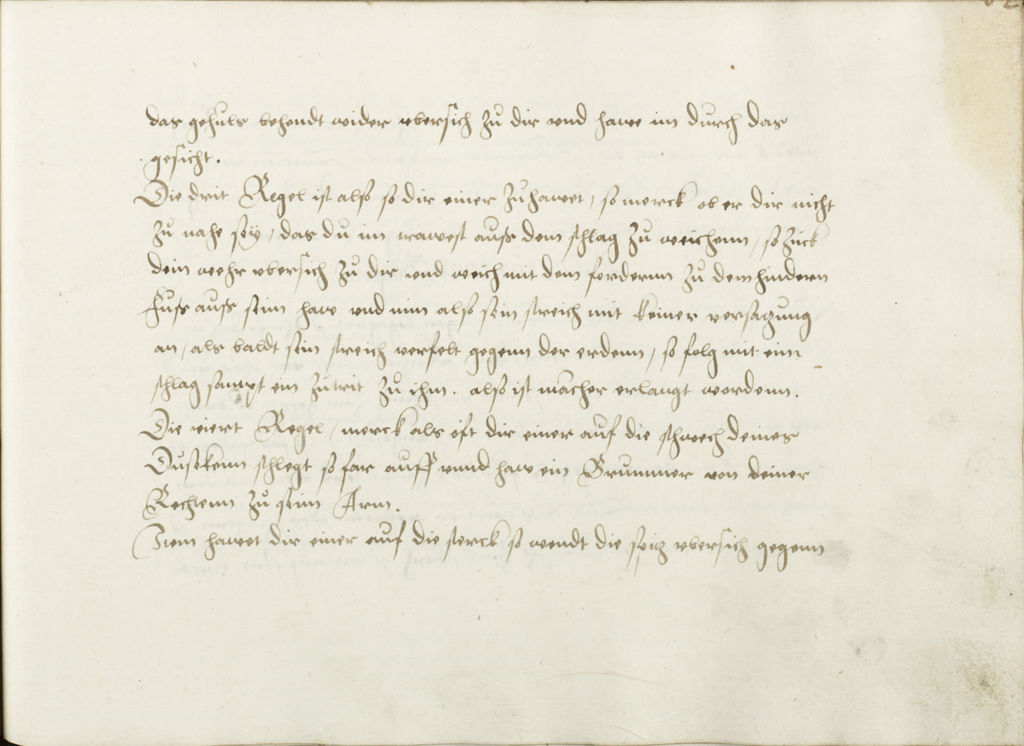 das gehuls behendt wider vbersich zu dir vnd hawe im durch das
gesicht.
Die drit Regel ist also so dir einer zuhawet, so merck ob er dir nicht
zu nahe seÿ, das du im trawest auss dem schlag zu weichenn, so zuck
dein wehr vbersich zu dir vnd weich mit dem fordernn zu dem hindern
Fuss auss seim haw vnd nim also sein streich mit keiner versatzung
an, als baldt sein streich verfelt gegenn der erdenn, so folg mit eim
schlag sampt eim zutrit zu ihm. also ist mancher erlangt wordenn.
Die viert Regel, merck als oft dir einer auf die schwech deines
Dusekenn schlegt so far auff vnnd haw ein Brummer von deiner
Rechtenn zu seim Arm.
Item hawet dir einer auf die sterck so wendt die spitz vbersich gegenn